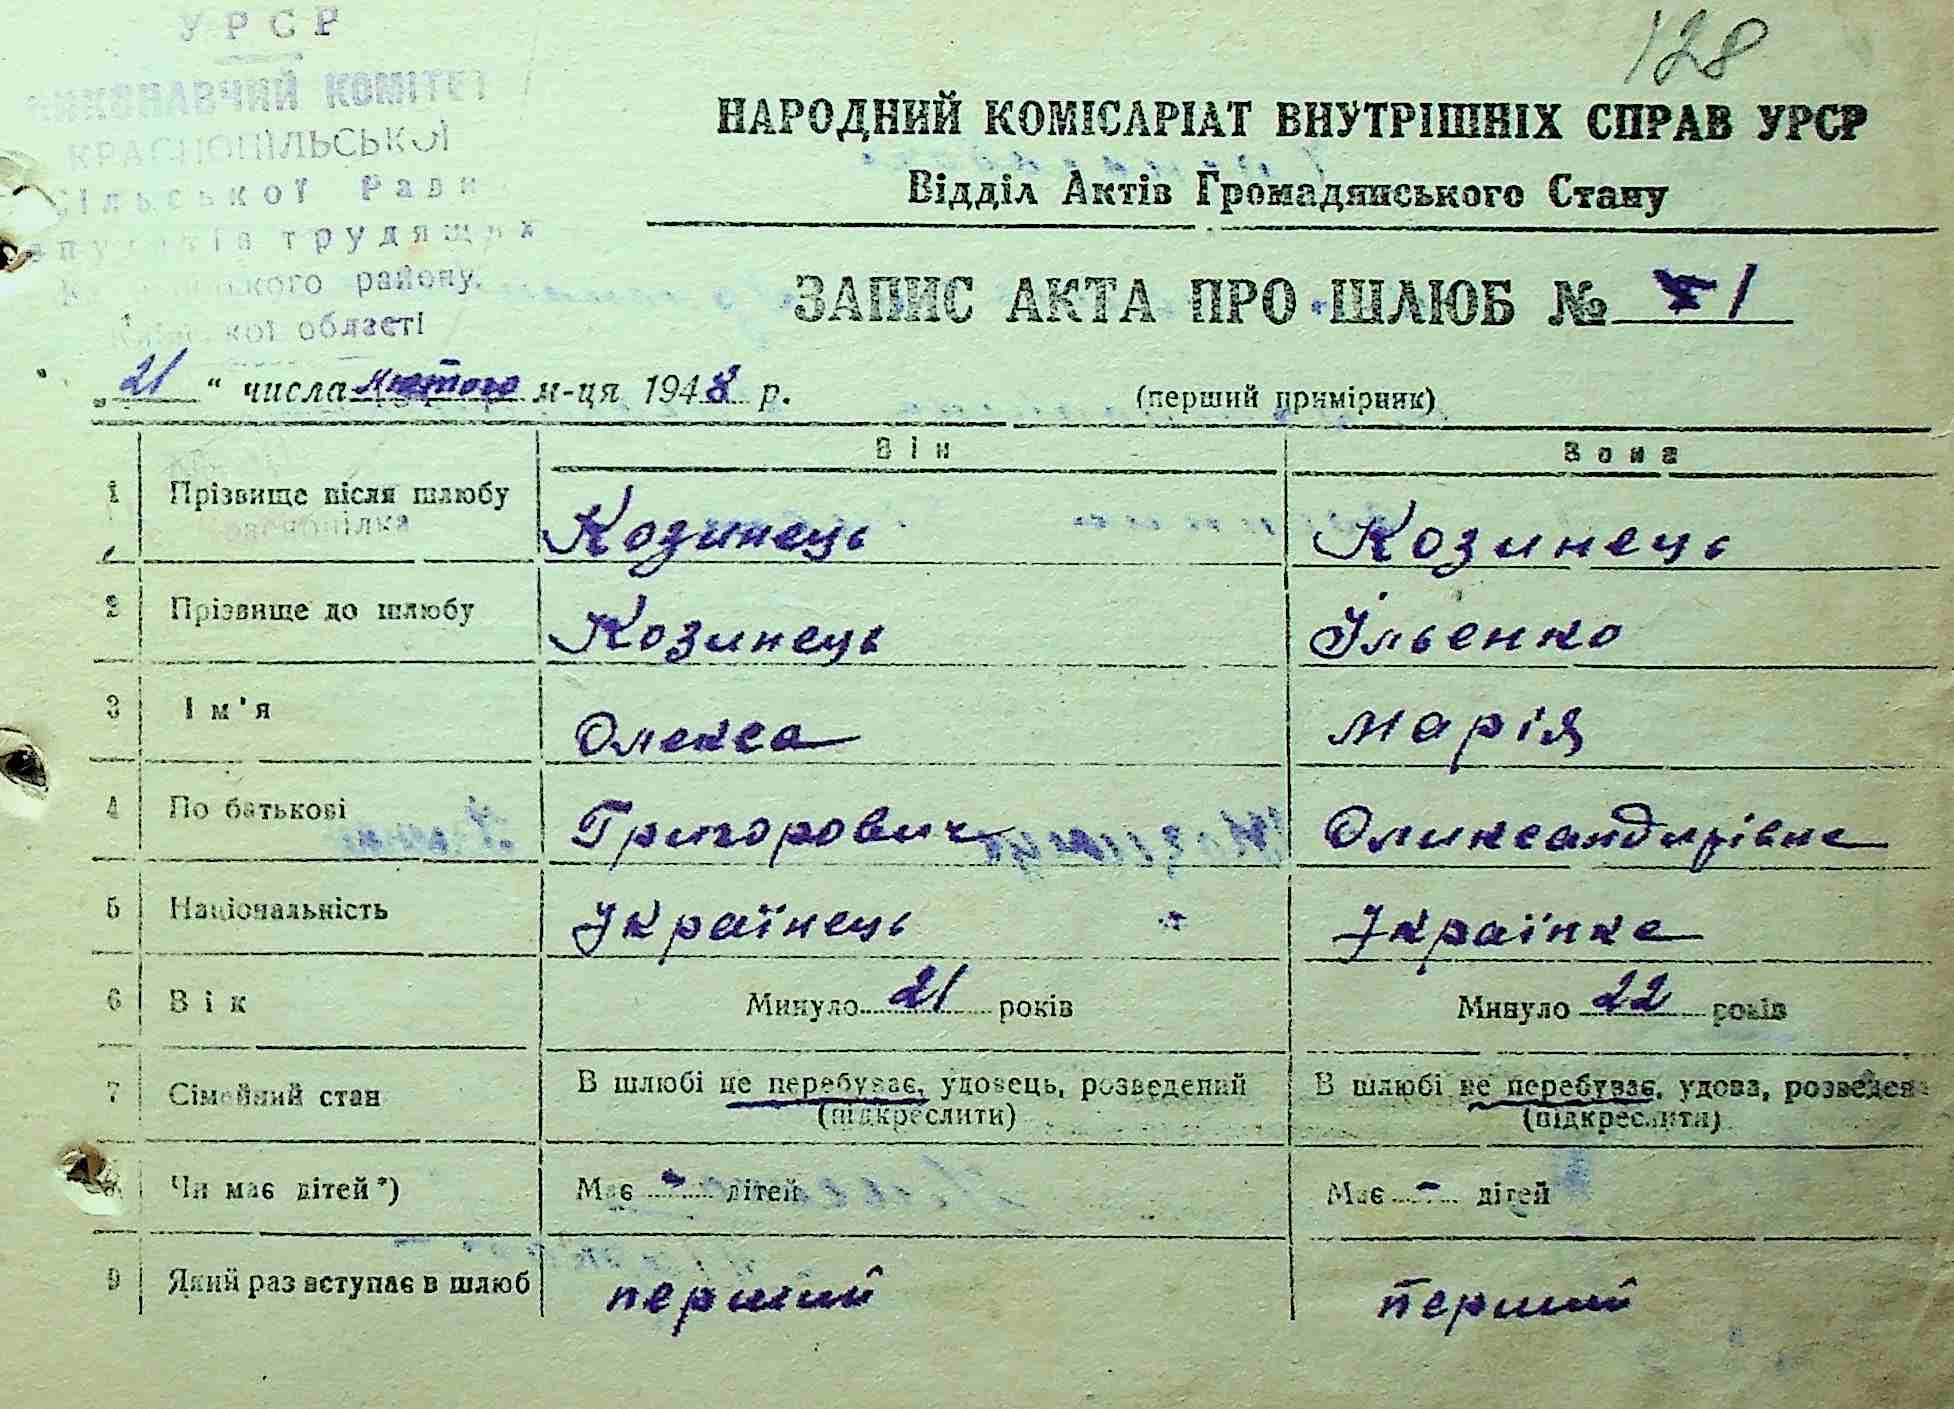 УРСР
128
ВИКОНАВЧИЙ КОМІТЕТ
КРАСНОПІЛЬСЬКОЇ
Сільської Ради
депутатів трудящих
району.
Київської області
НАРОДНИЙ КОМІСАРІАТ ВНУТРІШНІХ СПРАВ УРСР
Відділ Актів Громадянського Стану
ЗАПИС АКТА ПРО ШЛЮБ № 1
„21“ числа лютого м-ця 1948 р. (перший примірник)
Він Вона
1 Прізвище після шлюбу Козинець Козинець
2 Прізвище до шлюбу Козинець Ільенко
3 Ім'я Олекса Марія
4 По батькові Григорович Олександирівна
5 Національність Українець Українка
6 Вік Минуло 21 років Минуло 22 років
7 Сімейний стан В шлюбі не перебуває, удовець, розведений В шлюбі не перебуває, удова, розведена
(підкреслити) (підкреслити)
8 Чи має дітей*) Має - дітей Має - дітей
9 Який раз вступає в шлюб перший перший